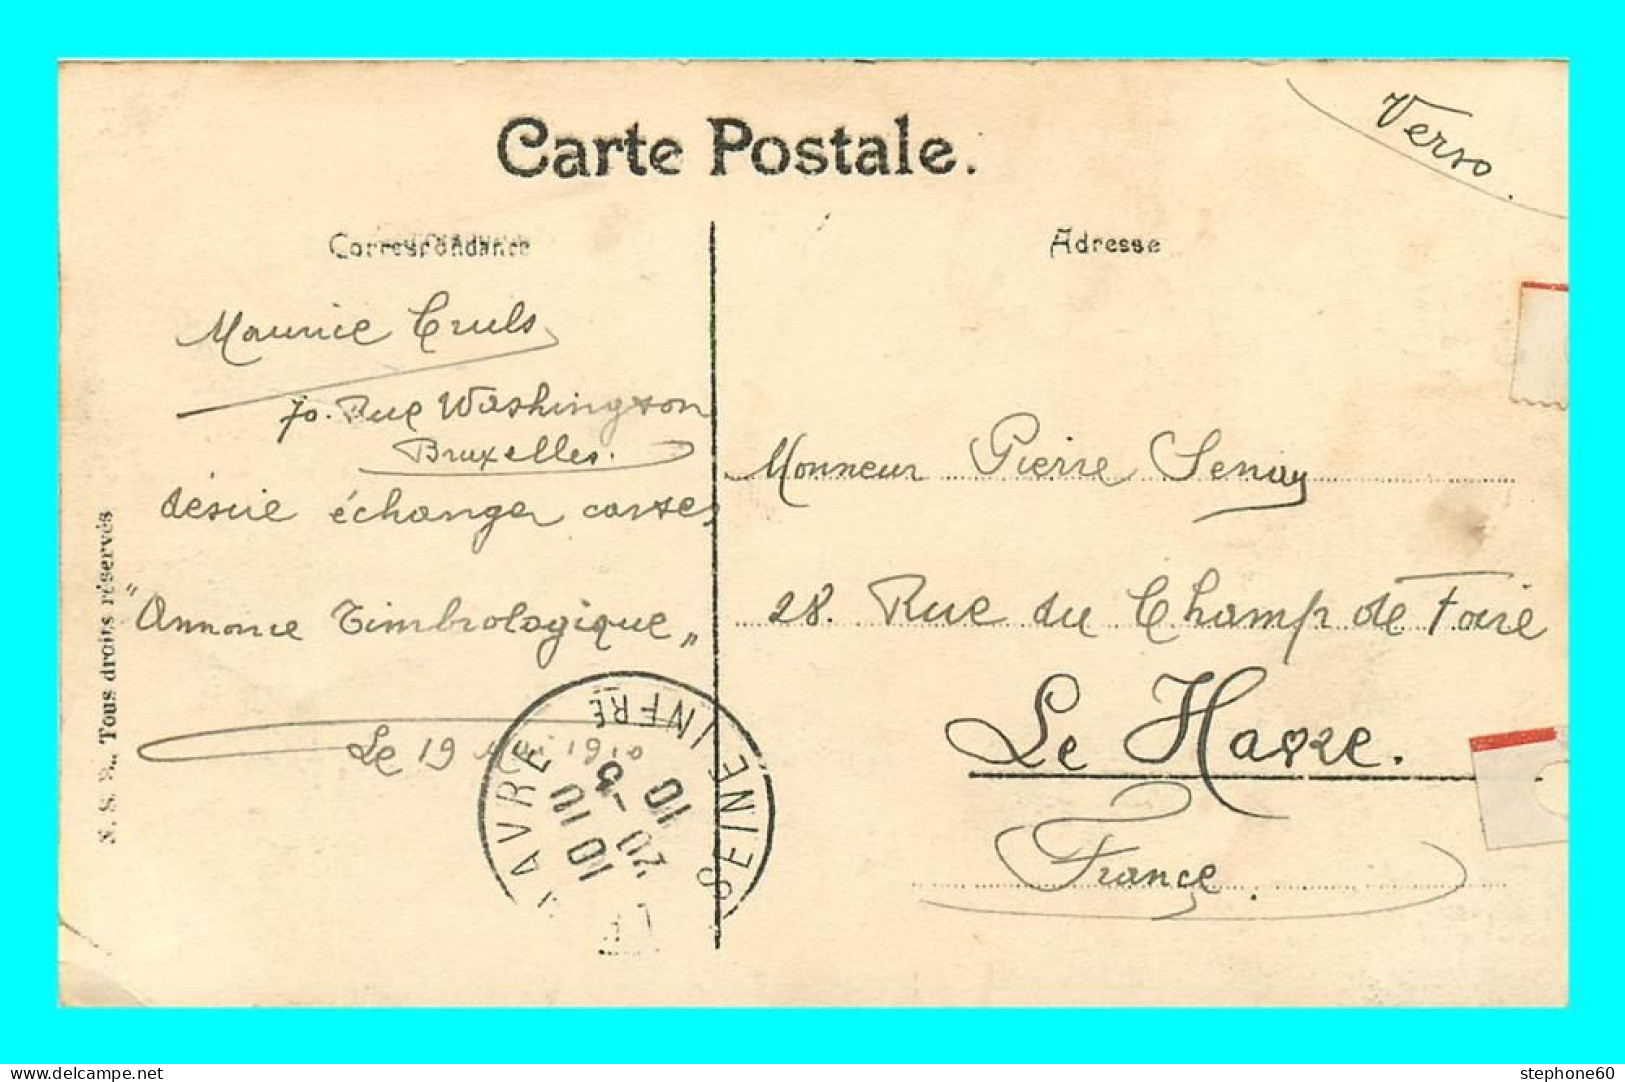 Verso.
Carte Postale.
Correspondance
Adresse
Maurice Cruls
70. Rue Washington
Bruxelles.
désire échanger cartes
"Annonce Timbrologique"
Le 19
Monsieur Pierre Senay
28. Rue du Champ de Foire
Le Havre.
France.
HAVRE SEINE INFRE
10 10
20 - 5
10
N. S. B., Tous droits réservés
stephone60